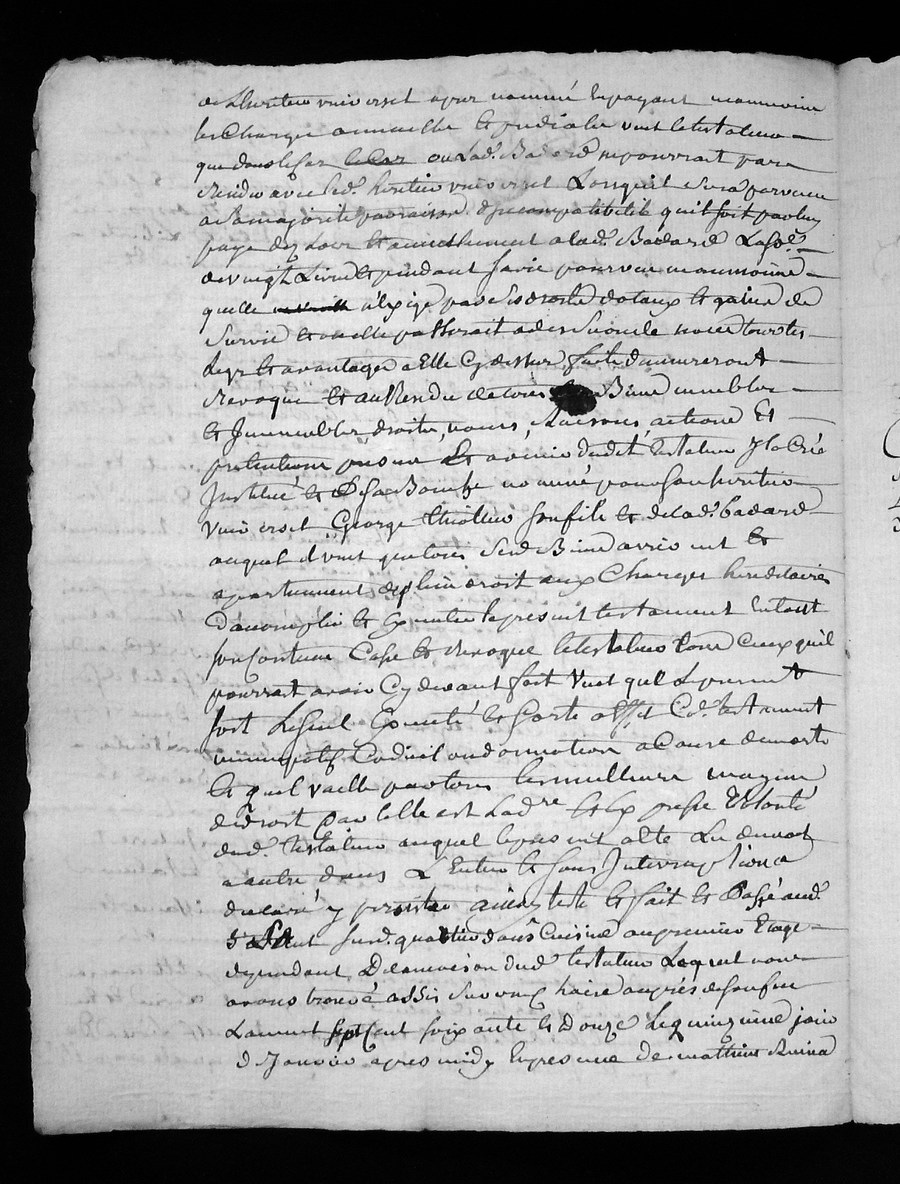 de Lheritier universel apres nommé en payant neanmoins
les Charges annuelles et prediales veut le testateur
que dans le Cas ou lad. Badard ne pourroit pas
rendre avec led. heritier universel Lorsquil sera parvenu
a sa majorité par raison dincompatibilité quil soit par luy
payé des lors et annuellement a lad. Badard La so.e
de vingt Livres et pendant sa vie pourveu neanmoins
quelle nexige pas ses droits dotaux et gains de
survie et ou elle passerait a des secondes noces tous les
Legs et avantages a Elle Cy dessus faits demeureront
revoqué et au Residu de tous Biens meubles
et Immeubles, droits, noms, Raisons actions Et
pretentions presens Et avenir dudit testateur Il a Crée
Institué et De sa Bouche nommé pour son heritier
universel George thiollier son fils et de lad. badard
auquel il veut que tous sesd. Biens arrivent et
apartiennent de plein droit aux Charges hereditaires
Dacomplir et Executer le present testament En tout
son Contenu Casse et revoque le testateur tous Ceux quil
pourroit avoir Cy devant fait Veut que le present
soit Le seul Executé et Sorte Effet Co.e testament
nuncupatif Codicil ou donnation a Cause de mort
et quil vaille par tous les meilleurs moyens
de droit Car telle est Lad.re et Expresse Volonté
dud. testateur auquel le present acte Lu de mot
a autre dans L'Entier et sans Interruption a
declaré y persister ainsy testé et fait et Passé aud.
St Et susd. quartier dans Cuisine au premier Etage
dependant De la maison dud. testateur Lequel nous
avons trouvé assis sur une Chaise aupres de son feu
Lan mil sept Cent soixante et Douze Le quinzieme jour
de Janvier apres midy En presence de mathieu